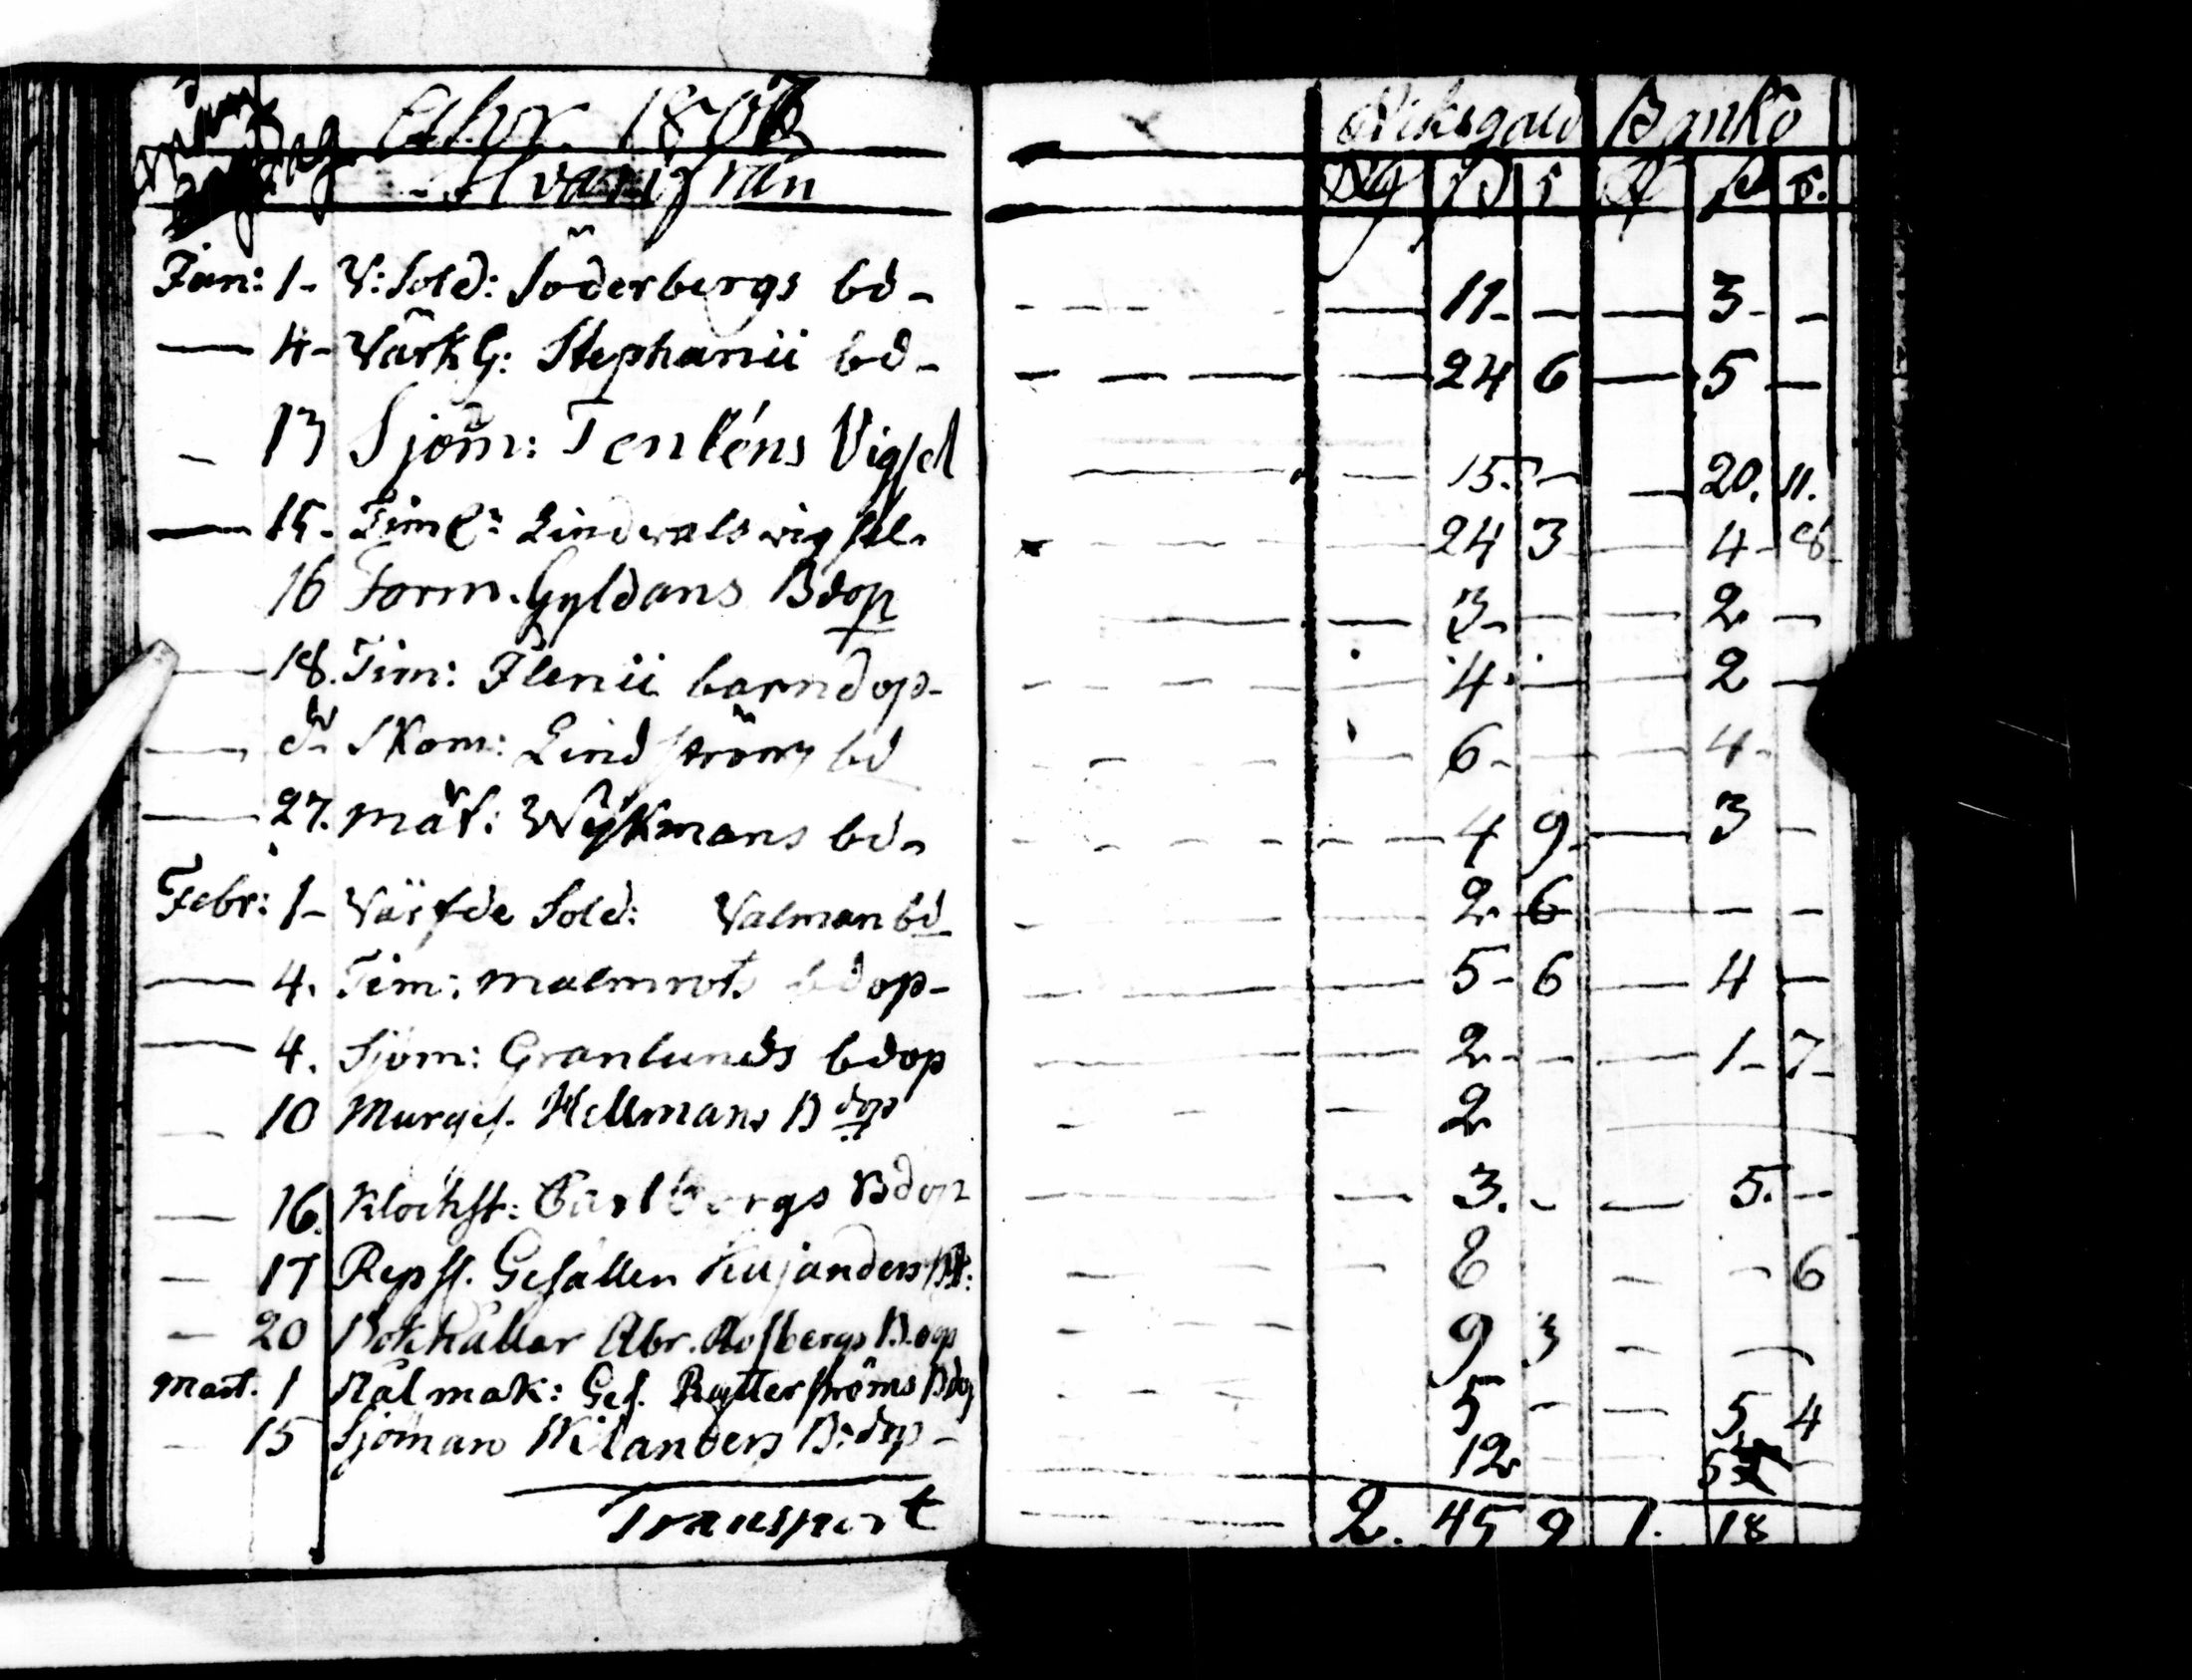 Åhr 1807 Riksgäld Banko
Hvarifrån Rd ß r ß r.
Jan: 1- V: Sold: Söderbergs bd- 11- — 3- —
— 4- Värk G: Stephanii bd- 24 6 — 5 —
— 13 Sjöm: Tenléns Vigsel 15. — 20. 11.
— 15- Tim Lindvals vigsel- 24 3 — 4- 8-
16 Form. Gyldans Bdop 3- — 2 —
— 18. Tim: Flenii barndop- 4. — 2 —
— do Skom: Lindströms bd 6- — 4-
— 27. mät: Wÿkmans bd- 4 9- — 3 —
Febr: 1- Värfde Sold: Valman bd 2 6 — — —
— 4. Tim: malmrots bdop- 5- 6 — 4 —
— 4. Sjöm: Granlunds bdop 2- — 1- 7-
— 10 Murges. Hellmans Bdop 2
— 16. Klockst: Carlbergs Bdop 3. — 5. —
— 17 Repsl. Gesällen 8 — — 6
— 20 Bokhållar Abr. Rosbergs B.dop 9 3 — —
Mart. 1 Nålmak: Ges. Rytterströms Bdop 5 — — 5 4
— 15 Sjöman Wilanders B:dop- 12 — — 5 —
Transport — 2. 45 9 1. 18